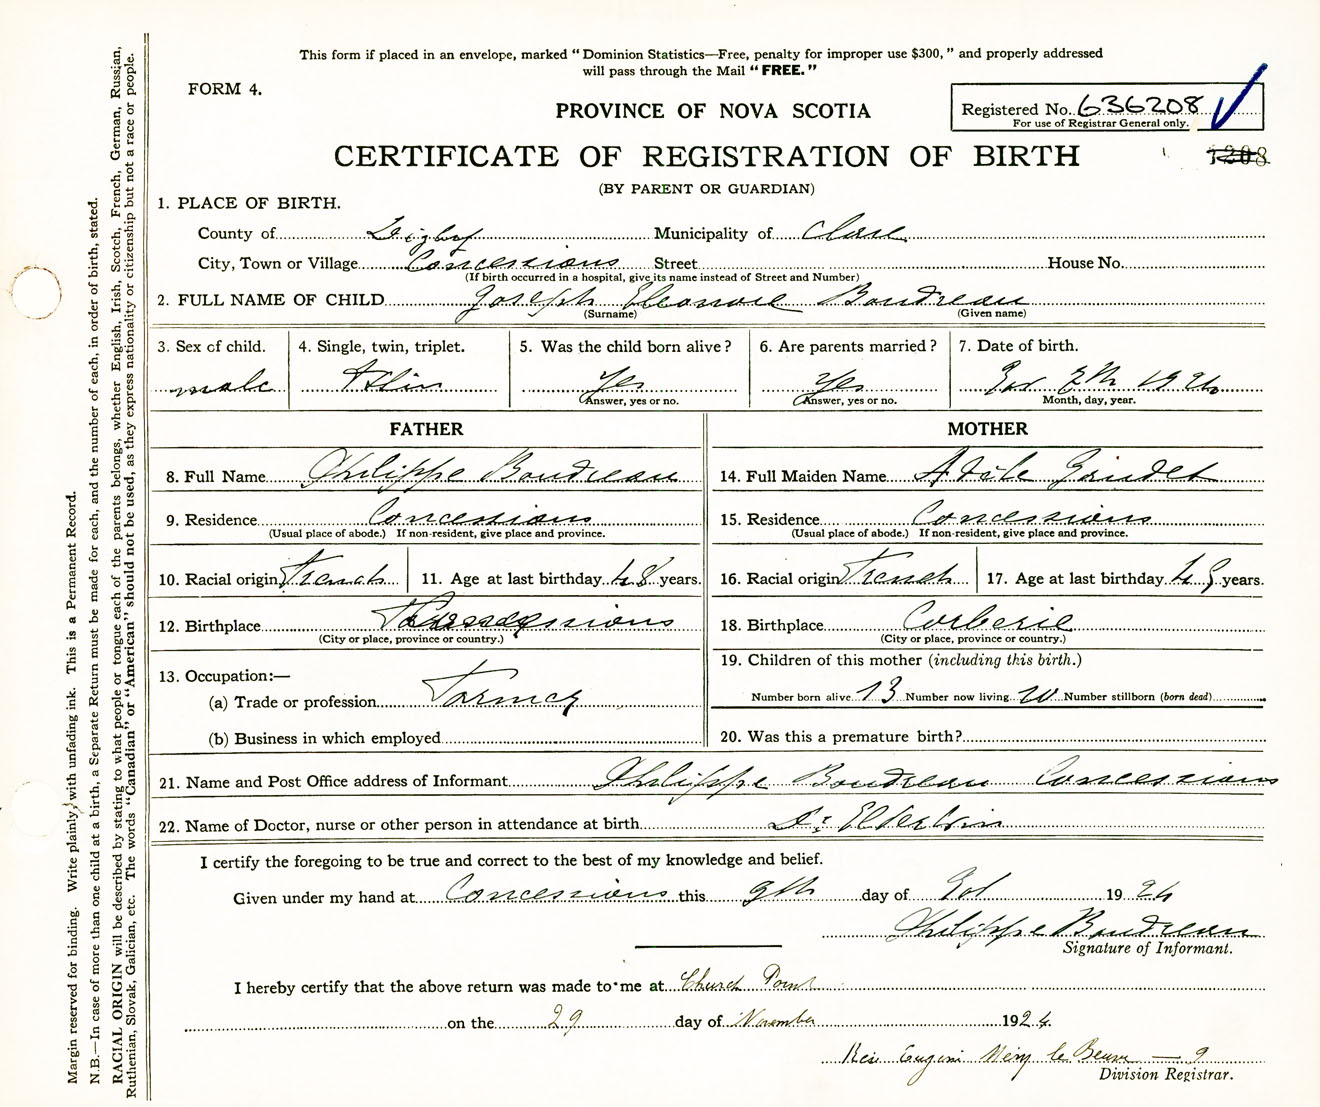 This form if placed in an envelope, marked "Dominion Statistics—Free, penalty for improper use $300," and properly addressed
will pass through the Mail "FREE."
FORM 4.
PROVINCE OF NOVA SCOTIA
Registered No. 636208
For use of Registrar General only.
CERTIFICATE OF REGISTRATION OF BIRTH
1208
(BY PARENT OR GUARDIAN)
1. PLACE OF BIRTH.
County of Digby Municipality of Clare
City, Town or Village Concessions Street House No.
(If birth occurred in a hospital, give its name instead of Street and Number)
2. FULL NAME OF CHILD Joseph Eleonore Boudreau
(Surname) (Given name)
3. Sex of child. 4. Single, twin, triplet. 5. Was the child born alive? 6. Are parents married? 7. Date of birth.
male Yes Yes 1924
Answer, yes or no. Answer, yes or no. Month, day, year.
FATHER MOTHER
8. Full Name Philippe Boudreau 14. Full Maiden Name
9. Residence Concessions 15. Residence Concessions
(Usual place of abode.) If non-resident, give place and province. (Usual place of abode.) If non-resident, give place and province.
10. Racial origin French 11. Age at last birthday 48 years. 16. Racial origin French 17. Age at last birthday years.
12. Birthplace 18. Birthplace Corberie
(City or place, province or country.) (City or place, province or country.)
19. Children of this mother (including this birth.)
13. Occupation:—
(a) Trade or profession Farmer Number born alive 13 Number now living 10 Number stillborn (born dead)
(b) Business in which employed 20. Was this a premature birth?
21. Name and Post Office address of Informant Philippe Boudreau Concessions
22. Name of Doctor, nurse or other person in attendance at birth Dr
I certify the foregoing to be true and correct to the best of my knowledge and belief.
Given under my hand at Concessions this 9th day of 1924
Philippe Boudreau
Signature of Informant.
I hereby certify that the above return was made to me at Church Point
on the 29 day of November 1924.
Rev. Eugene le
Division Registrar.
Margin reserved for binding. Write plainly, with unfading ink. This is a Permanent Record.
N.B.—In case of more than one child at a birth, a Separate Return must be made for each, and the number of each, in order of birth, stated.
RACIAL ORIGIN will be described by stating to what people or tongue each of the parents belongs, whether English, Irish, Scotch, French, German, Russian,
Ruthenian, Slovak, Galician, etc. The words "Canadian" or "American" should not be used, as they express nationality or citizenship but not a race or people.